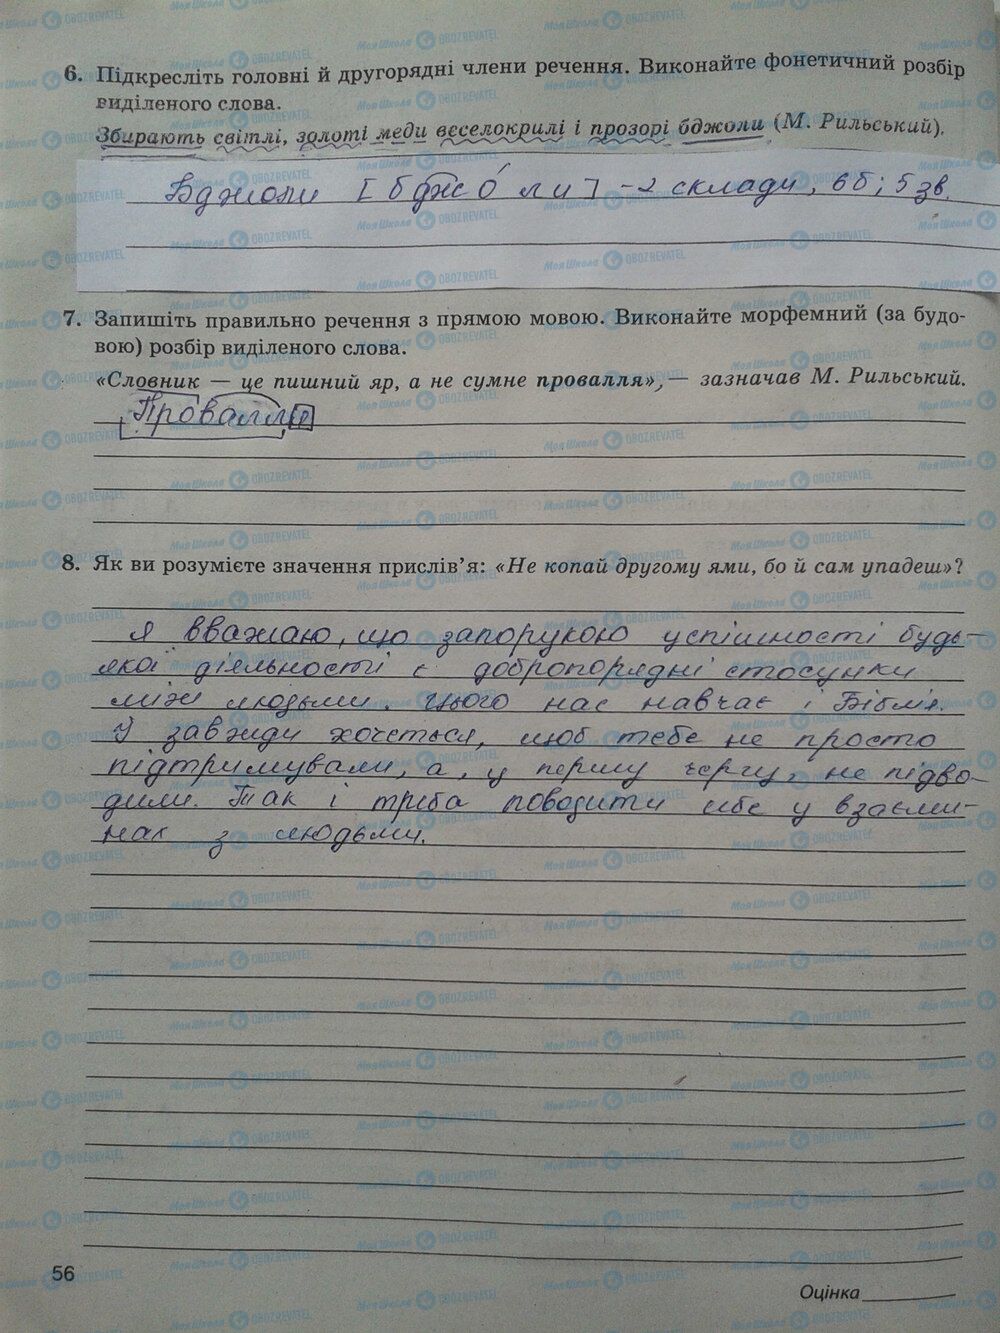 6. Підкресліть головні й другорядні члени речення. Виконайте фонетичний розбір
виділеного слова.
Збирають світлі, золоті меди веселокрилі і прозорі бджоли (М. Рильський).
Бджоли [бджо́ли] - 2 склади, 6б; 5зв.
7. Запишіть правильно речення з прямою мовою. Виконайте морфемний (за будо-
вою) розбір виділеного слова.
«Словник — це пишний яр, а не сумне провалля», — зазначав М. Рильський.
Провалля
8. Як ви розумієте значення прислів’я: «Не копай другому ями, бо й сам упадеш»?
Я вважаю, що запорукою успішності будь-
якої діяльності є добропорядні стосунки
між людьми. Цього нас навчає і Біблія.
І завжди хочеться, щоб тебе не просто
підтримували, а, у першу чергу, не підво-
дили. Так і треба поводити себе у взаєми-
нах з людьми.
56
Оцінка